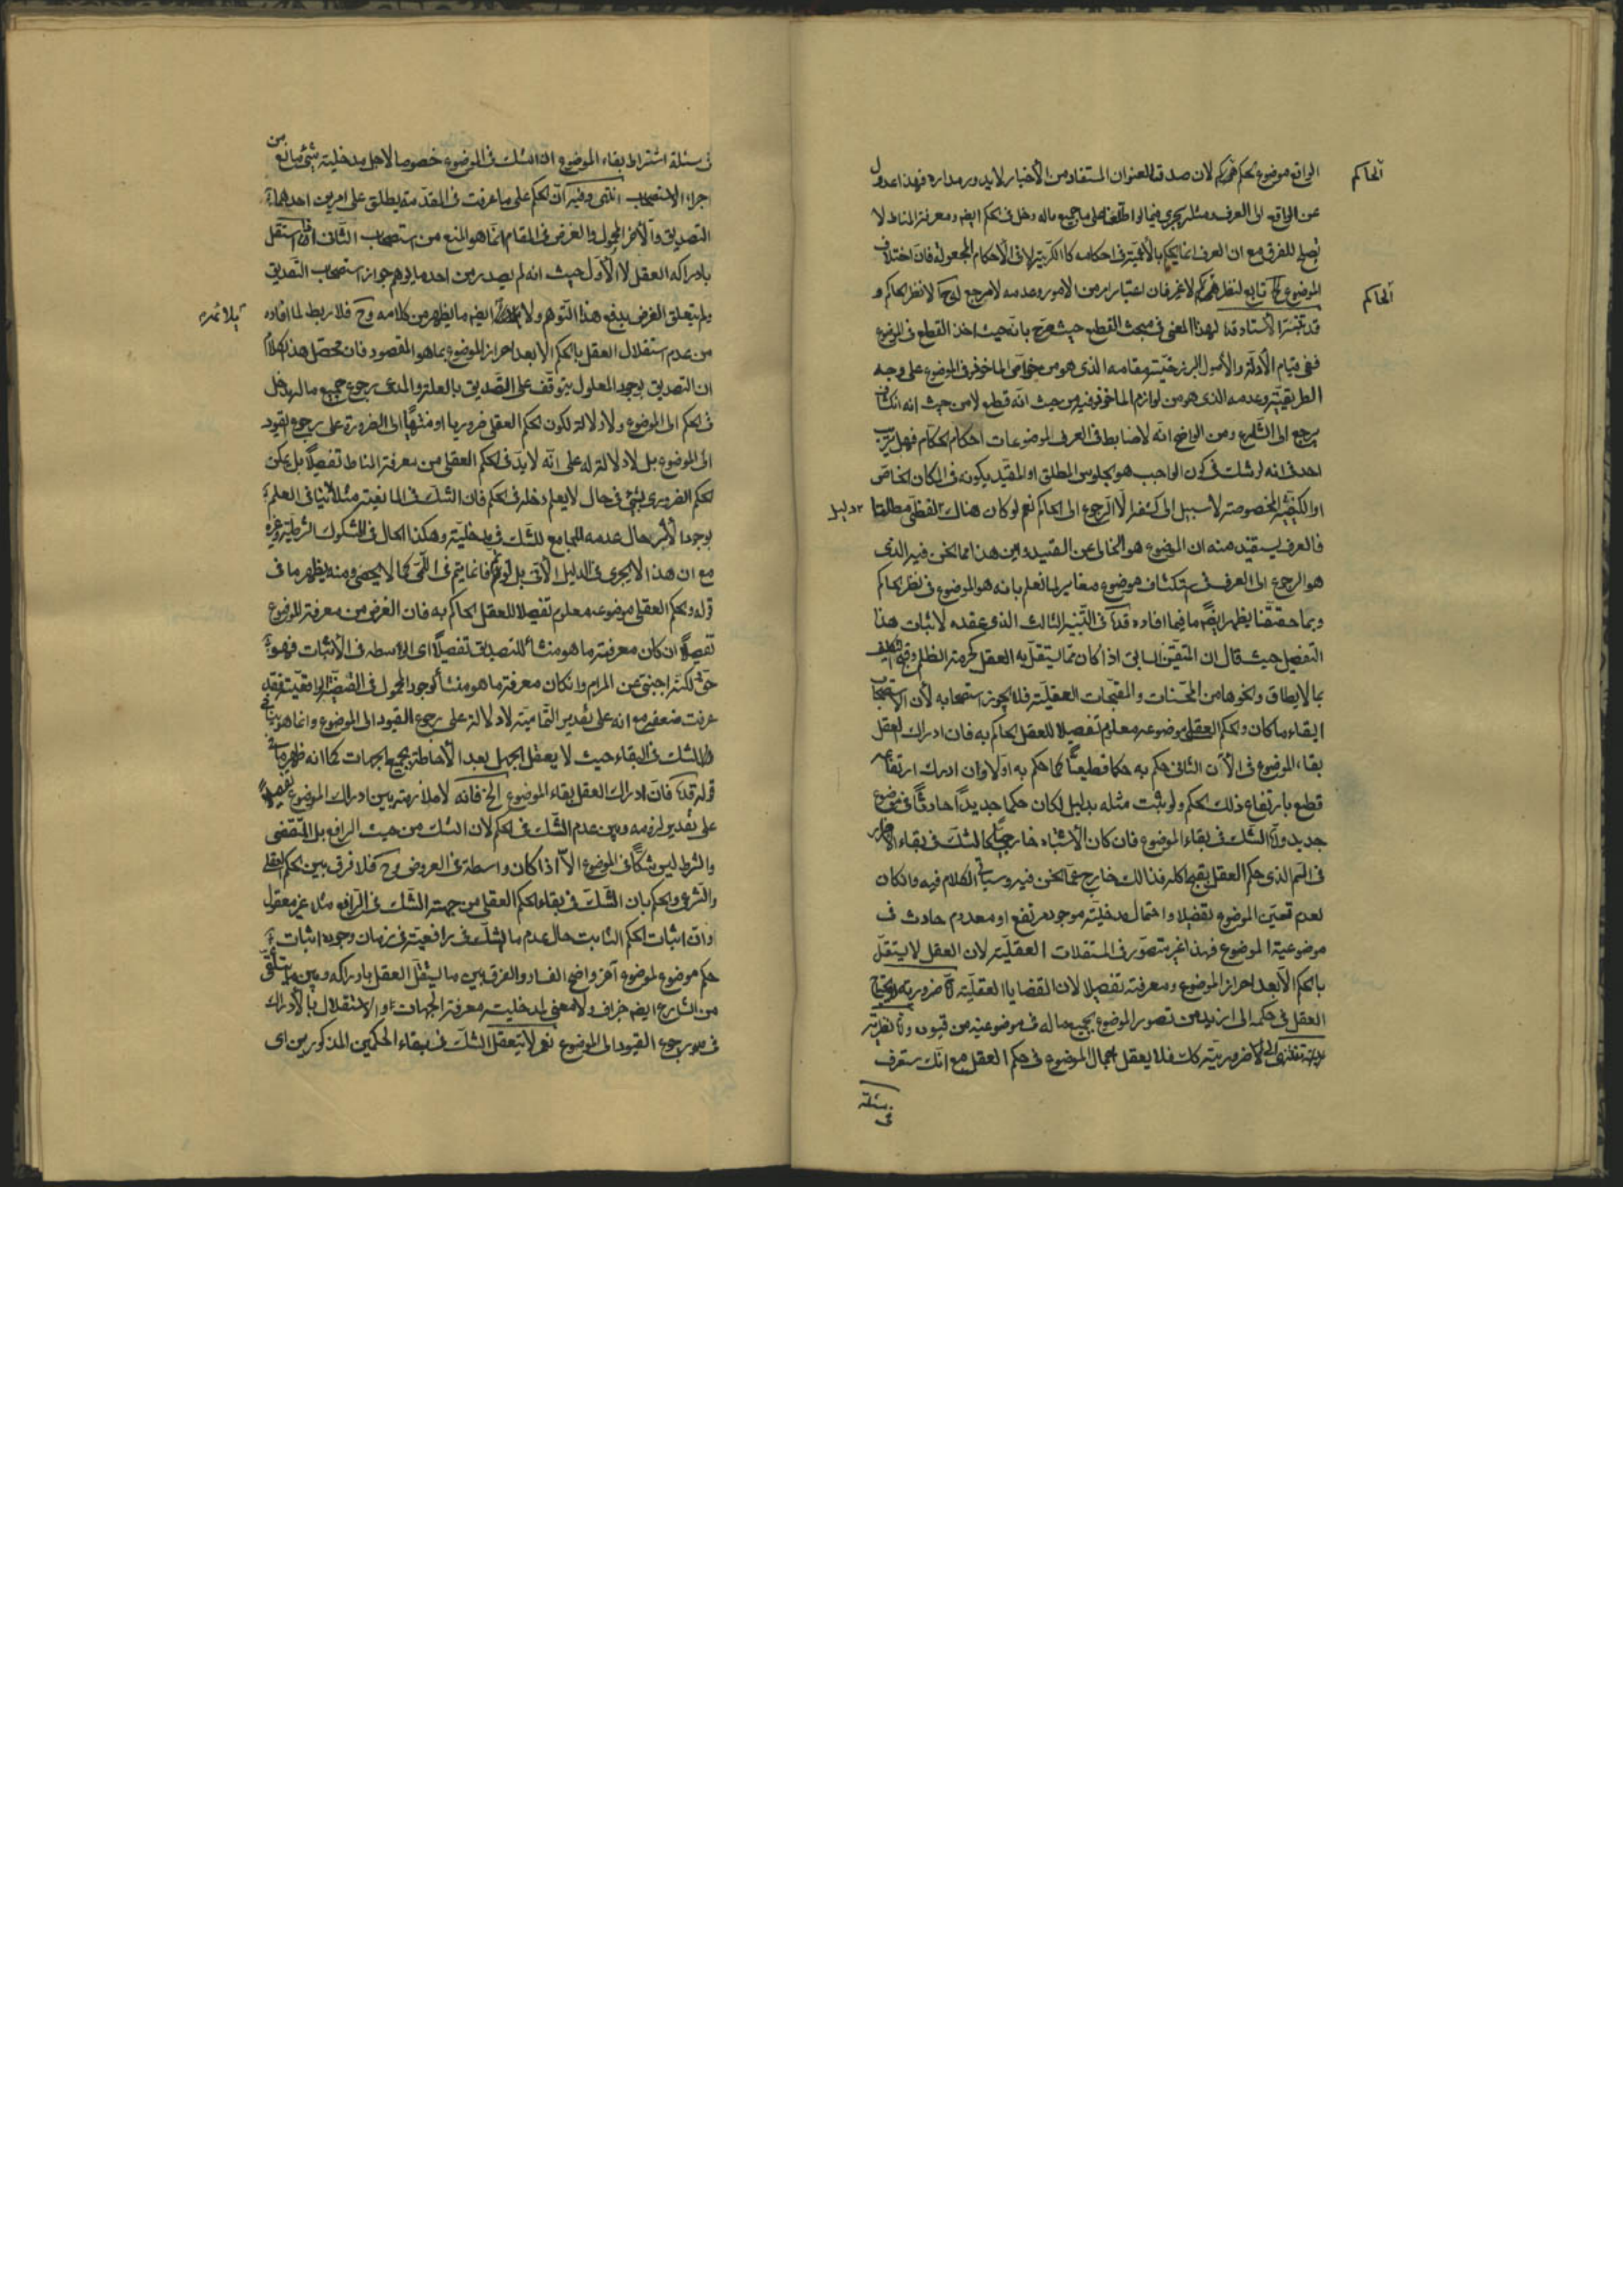 الواقع موضوع لحكم لان صدق العنوان المستفاد من الأخبار لا يدور مداره فهذا عدول
الحاكم
عن الواقع الى العرف ومثله يجرى فيما لو اطلعنا على ما جميع ماله دخل فى الحكم ايضه ومعرفة المناط لا
يصلح للفرق مع ان العرف انما يحكم فى احكامه لا فى الأحكام المجعولة فان اختلاف
الموضوع تابع لنظر لا غير فان اعتبار امر من الامور وعدمه لا مرجع له الا نظر الحاكم و
الحاكم
قد تنبه الأستاد قده لهذا المعنى فى مبحث القطع حيث صرح بانه حيث اخذ القطع فى الموضوع
ففى قيام الأدلة والأصول مقامه الذى هو من خواص الماخوذ فى الموضوع على وجه
الطريقية وعدمه الذى هو من لوازم الماخوذ فيه من حيث انه قطع لا من حيث انه انكشاف
يرجع الى الشارع ومن الواضح انه لا ضابط فى العرف لموضوعات احكام الحكام فهل يرتاب
احد فى انه لو شك فى كون الواجب هو الجلوس المطلق او المقيد بكونه فى المكان الخاص
او الكيفية المخصوصة لا سبيل الى كشفه الا الرجوع الى الحاكم نعم لو كان هناك لفظى مطلقا
دليل
فالعرف يستفيد منه ان الموضوع هو الخالى عن القيد واين هذا مما نحن فيه الذى
هو الرجوع الى العرف فى استكشاف موضوع مغاير لما نعلم بانه هو الموضوع فى نظر الحاكم
وبما حققنا يظهر ايضه ما فيما افاده قده فى التنبيه الثالث الذى عقده لاثبات هذا
التفصيل حيث قال ان المتيقن السابق اذا كان مما يستقل به العقل كحرمة الظلم وقبح التكليف
بما لا يطاق ونحوها من المحسنات والمقبحات العقلية فلا يجوز استصحابه لأن الاستصحاب
ابقاء ما كان والحكم العقلى موضوعه معلوم تفصيلا للعقل الحاكم به فان ادراك العقل
بقاء الموضوع فى الآن الثانى حكم به حكما قطعيا كما حكم به اولا وان ادرك ارتفاعه
قطع بارتفاع ذلك الحكم ولو ثبت مثله بدليل لكان حكما جديدا حادثا فى موضوع
جديد واما الشك فى بقاء الموضوع فان كان لاشتباه خارجى كالشك فى بقاء الاضرار
فى السم الذى حكم العقل بقبح اكله فذلك خارج عما نحن فيه وسياتى الكلام فيه وان كان
لعدم تعين الموضوع تفصيلا واحتمال مدخلية موجود مرتفع او معدوم حادث فى
موضوعية الموضوع فهذا غير متصور فى المستقلات العقلية لان العقل لا يستقل
بالحكم الا بعد احراز الموضوع ومعرفته تفصيلا لان القضايا العقلية اما ضرورية لا يحتاج
العقل فى حكمه الى ازيد من تصور الموضوع بجميع ما له فى موضوعيته من قيوده واما نظرية
تنتهى الى ضرورية كذلك فلا يعقل اجمال الموضوع فى حكم العقل مع انك ستعرف
فى مسئلة
فى مسئلة اشتراط بقاء الموضوع ان الشك فى الموضوع خصوصا لاجل مدخلية شئ مانع من
اجراء الاستصحاب انتهى وفيه ان الحكم على ما عرفت فى المقدمة يطلق على امرين احدهما
التصديق والآخر المجعول والغرض فى المقام انما هو المنع من استصحاب الثانى استقل
بادراكه العقل لا الأول حيث انه لم يصدر من احد ما يوهم جواز استصحاب التصديق
ولم يتعلق الغرض بدفع هذا التوهم ولا ايضه ما يظهر من كلامه وح فلا ربط لما افاده
بلا ثمرة
من عدم استقلال العقل بالحكم الا بعد احراز الموضوع بما هو المقصود فان محصل هذا الكلام
ان التصديق بوجود المعلول يتوقف على التصديق بالعلة والمدعى رجوع جميع ما له دخل
فى الحكم الى الموضوع ولا دلالة لكون الحكم العقلى ضروريا او منتهيا الى الضرورة على رجوع القيود
الى الموضوع بل لا دلالة له على انه لا بد فى الحكم العقلى من معرفة المناط تفصيلا بل يمكن
الحكم الضرورى بشئ فى حال لا يعلم دخله فى الحكم فان الشك فى المانعية مثلا لا ينافى العلم
بوجود الأثر حال عدمه المجامع للشك فى مدخليته وهكذا الحال فى المشكوك الشرطية وغيره
مع ان هذا لا يجرى فى الدليل الآنى بل لو تم فانما يتم فى اللمى كما لا يخفى ومنه يظهر ما فى
قوله والحكم العقلى موضوعه معلوم تفصيلا للعقل الحاكم به فان الغرض من معرفة الموضوع
تفصيلا ان كان معرفة ما هو منشأ للتصديق تفصيلا اى الواسطه فى الأثبات فهو
حق لكنه اجنبى عن المرام وان كان معرفة ما هو منشأ لوجود المحمول فى القضية الواقعية فقد
عرفت ضعفه مع انه على تقدير التمامية لا دلالة على رجوع القيود الى الموضوع وانما هو ينافى
الشك فى البقاء حيث لا يعقل الجهل بعد الأحاطة بجميع الجهات كما انه ظهر ما فى
قوله قده فان ادراك العقل بقاء الموضوع الخ فانه لا ملازمة بين ادراك الموضوع تفصيلا
على تقدير لزومه وبين عدم الشك فى الحكم لان الشك من حيث الرافع بل المقتضى
والشرط ليس شكا فى الموضوع الا اذا كان واسطة فى العروض وح فلا فرق بين الحكم العقلى
والشرعى والحكم بان الشك فى بقاء الحكم العقلى من جهة الشك فى الرافع مثلا غير معقول
وان اثبات الحكم الثابت حال عدم ما يشك فى رافعيته فى زمان وجوده اثبات
حكم موضوع لموضوع آخر واضح الفساد والفرق بين ما يستقل العقل بادراكه وبين ما يتلقى
من الشارع ايضه جزاف ولا معنى لمدخلية معرفة الجهات او الاستقلال بالأدراك
فى رجوع القيود الى الموضوع نعم لا يتعقل الشك فى بقاء الحكمين المذكورين اى